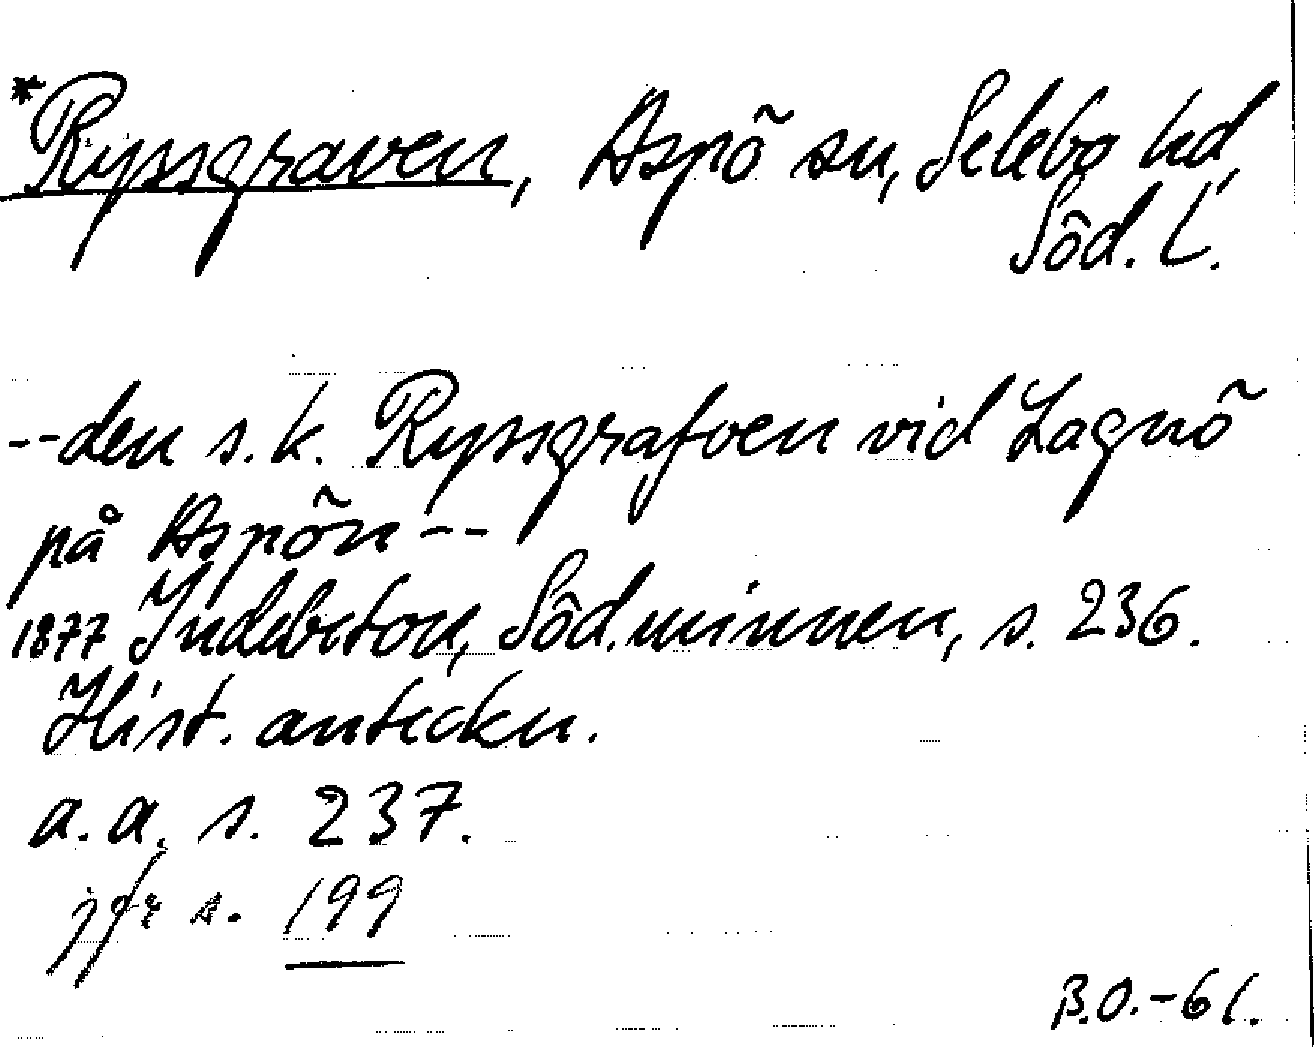 *Ryssgraven, Aspö sn, Selebo hd,
Söd. L.
--den s.k. Ryssgrafven vid Lagnö
på Aspön--
1877 Indebetou, Söd.minnen, s. 236.
Hist. anteckn.
a.a. s. 237.
jfr s. 199
B.O.-61.